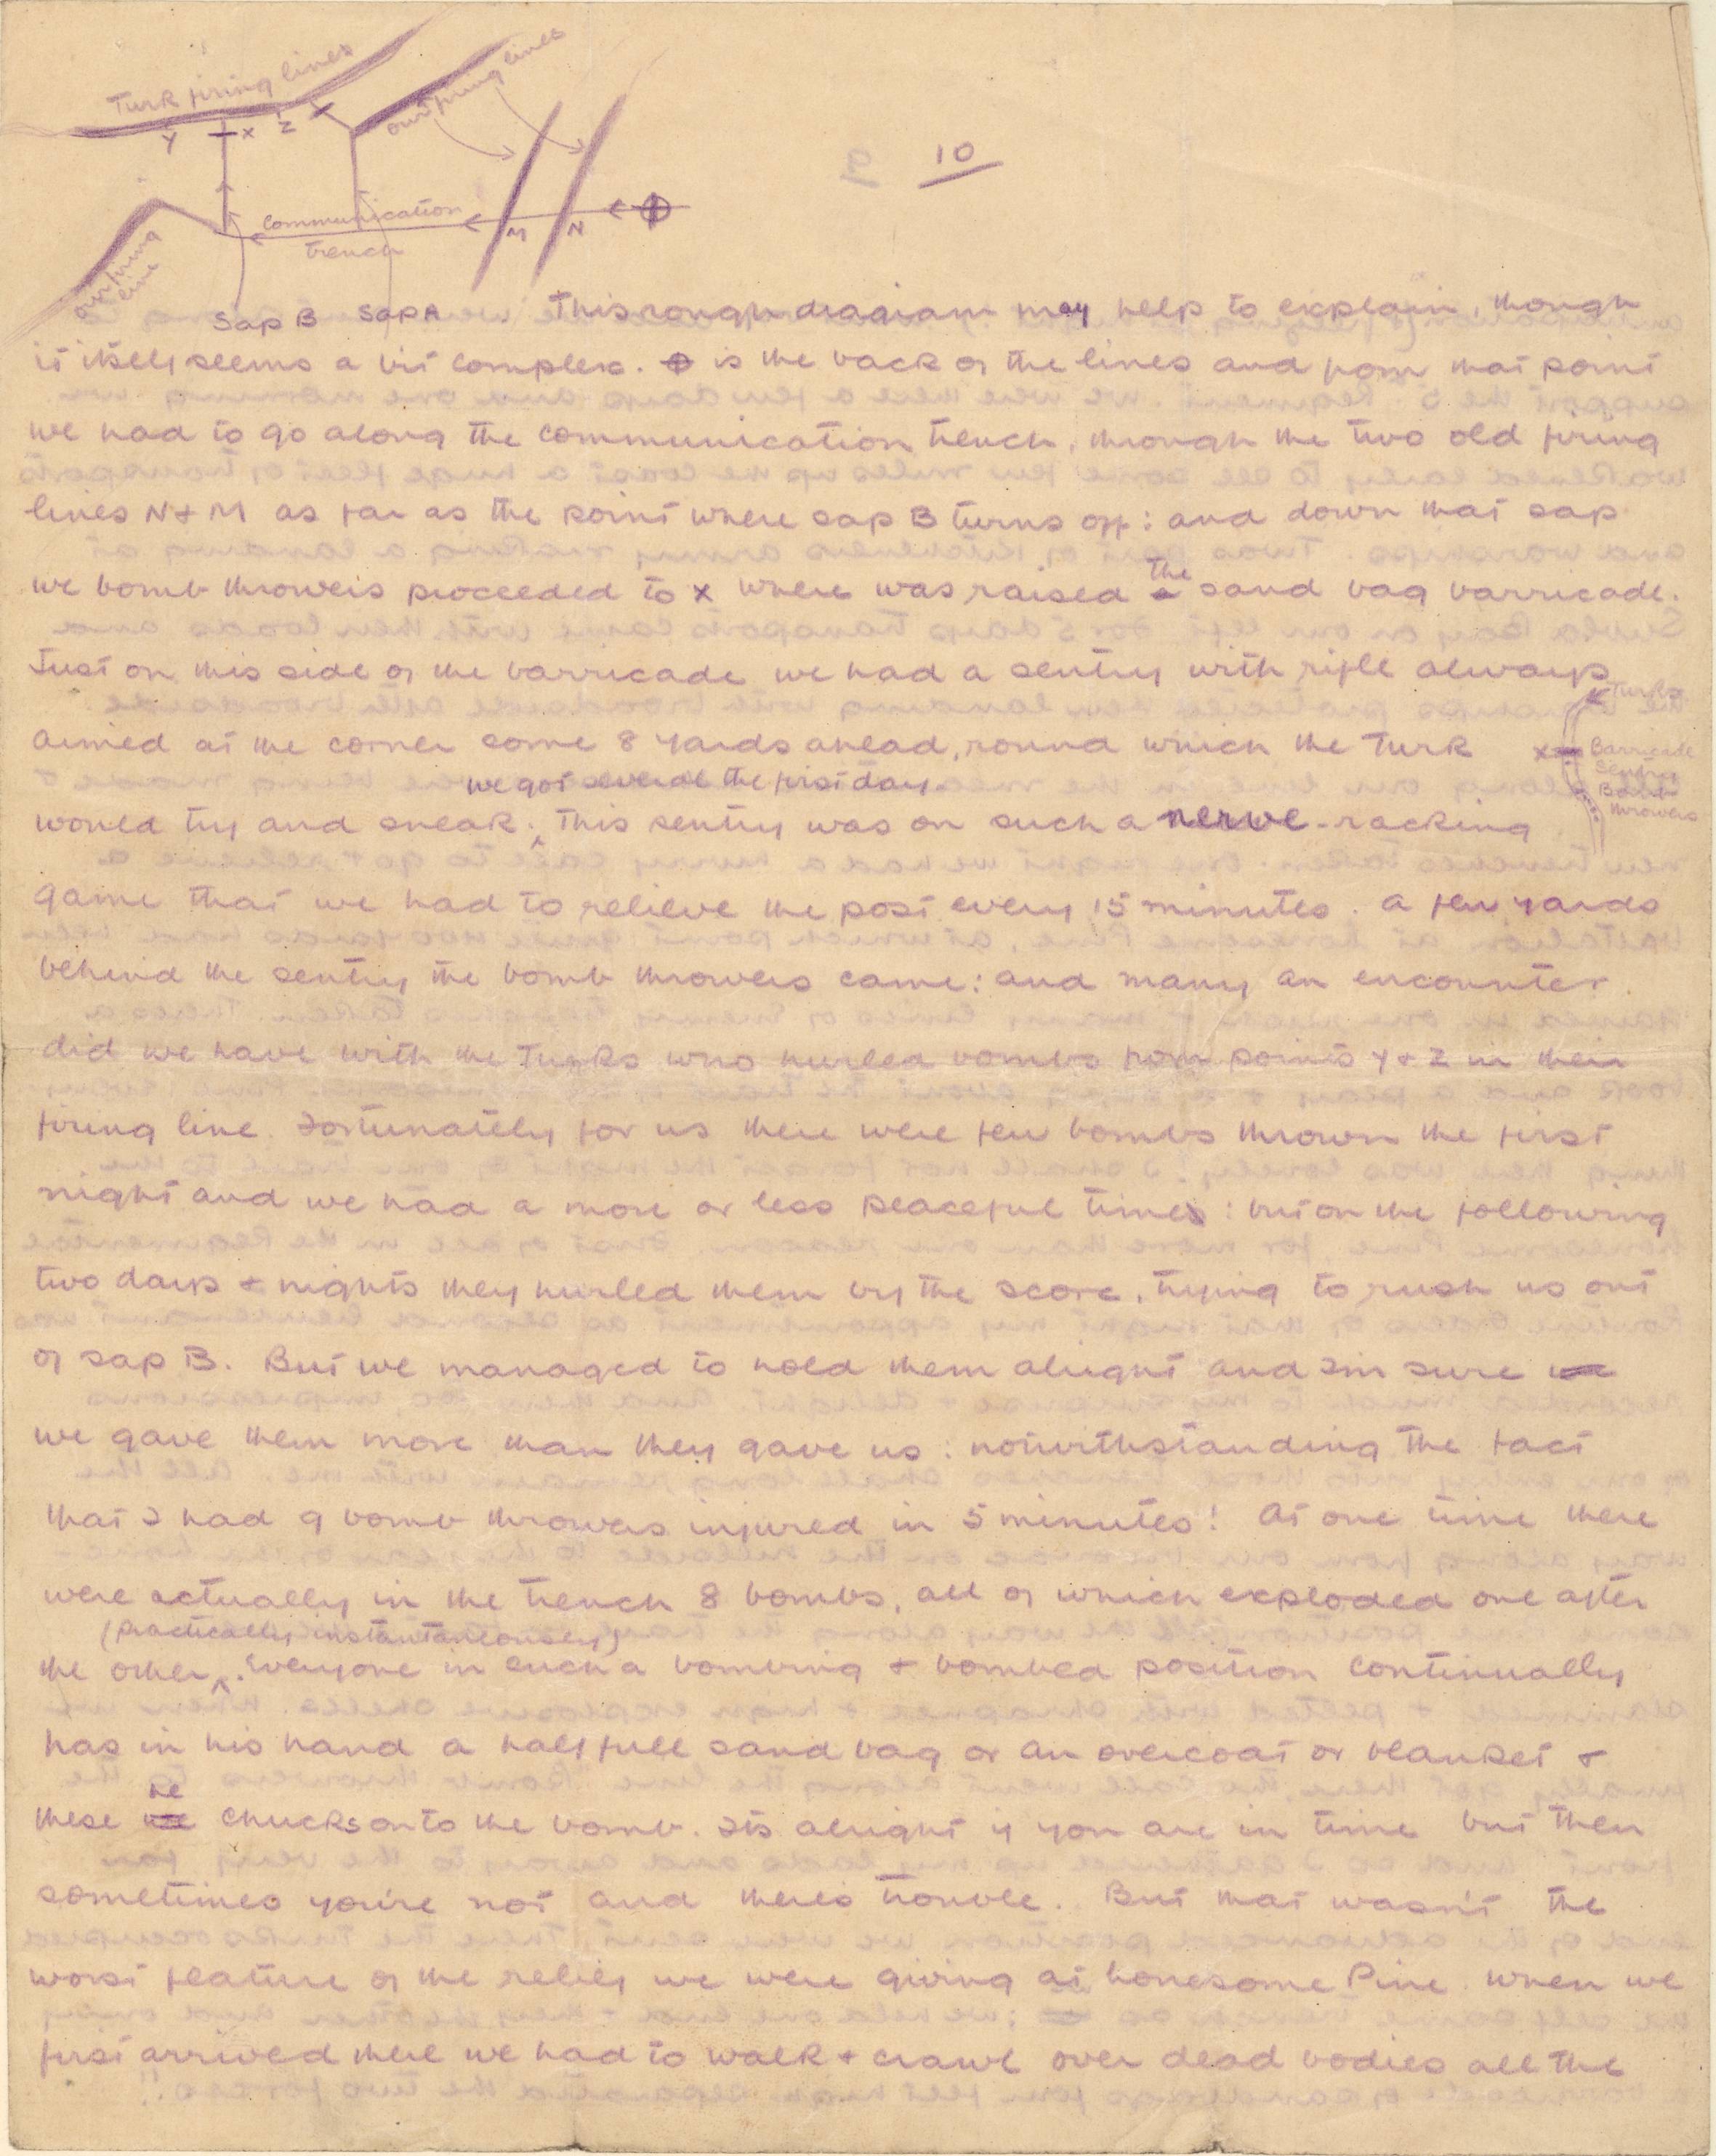 Turk firing lines
our firing lines
Y X Z
10
Communication
trench
M N
our firing
line
Sap B Sap A. This rough diagram may help to explain, though
it itself seems a bit complex. ⌽ is the back of the lines and from that point
we had to go along the communication trench, through the two old firing
lines N & M as far as the point where sap B turns off: and down that sap
we bomb throwers proceeded to x where was raised a the sand bag barricade.
Just on this side of the barricade we had a sentry with rifle always
aimed at the corner some 8 yards ahead, round which the Turk
we got several the first day.
would try and sneak. ^ This sentry was on such a nerve-racking
Turks
X Barricade
Sentry
Bomb
throwers
game that we had to relieve the post every 15 minutes. A few yards
behind the sentry the bomb throwers came: and many an encounter
did we have with the Turks who hurled bombs from points Y & Z in their
firing line. Fortunately for us there were few bombs thrown the first
night and we had a more or less peaceful time: but on the following
two days & nights they hurled them by the score, trying to rush us out
of sap B. But we managed to hold them alright and I'm sure we
we gave them more than they gave us: notwithstanding the fact
that I had 9 bomb throwers injured in 5 minutes! At one time there
were actually in the trench 8 bombs, all of which exploded one after
(practically instantaneously)
the other ^. Everyone in such a bombing & bombed position continually
has in his hand a half full sand bag or an overcoat or blanket &
he
these we chucks onto the bomb. Its alright if you are in time but then
sometimes you're not and there's trouble. But that wasn't the
worst feature of the relief we were giving at Lonesome Pine. When we
first arrived there we had to walk & crawl over dead bodies all the